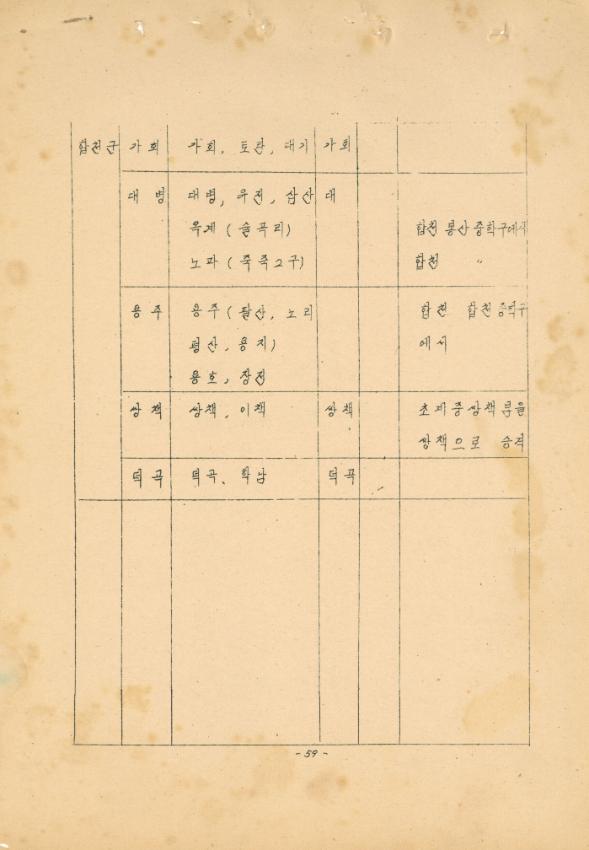 합천군 가회 가회, 토관, 대기 가회
대병 대병, 유전, 삼산 대
옥계 (술곡리) 합천 봉산 중학구에서
노파 (죽죽2구) 합천 〃
용주 용주 (달산, 노리 합천 합천 중학구
평산, 용지) 에서
용호, 장전
쌍책 쌍책, 이책 쌍책 초계중쌍책분을
쌍책으로 승격
덕곡 덕곡, 학남 덕곡
- 59 -